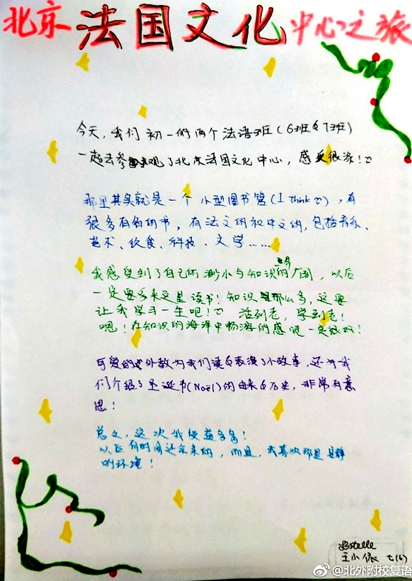 北京法国文化中心之旅
今天，我们初一的两个法语班（6班&7班）
一起去参观了北京法国文化中心，感受很深！
那里其实就是一个小型图书馆（I think），有
很多有趣的书，有法文的和中文的，包括音乐、
艺术、饮食、科技、文学……
我感受到了自己的渺小与知识的广阔，以后
一定要多来这里读书！知识那么多，这要
让我学习一生吧！活到老，学到老！
吧！在知识的海洋中畅游的感觉一定很好！
可爱的外教为我们读&表演了小故事，还为我
们介绍了圣诞节（Noël）的由来&历史，非常有意
思！
总之，这次我受益多多！
以后有时间还会来的，而且，我喜欢那里安静
的环境！
Estelle
王小 七(6)
@北外附校复语